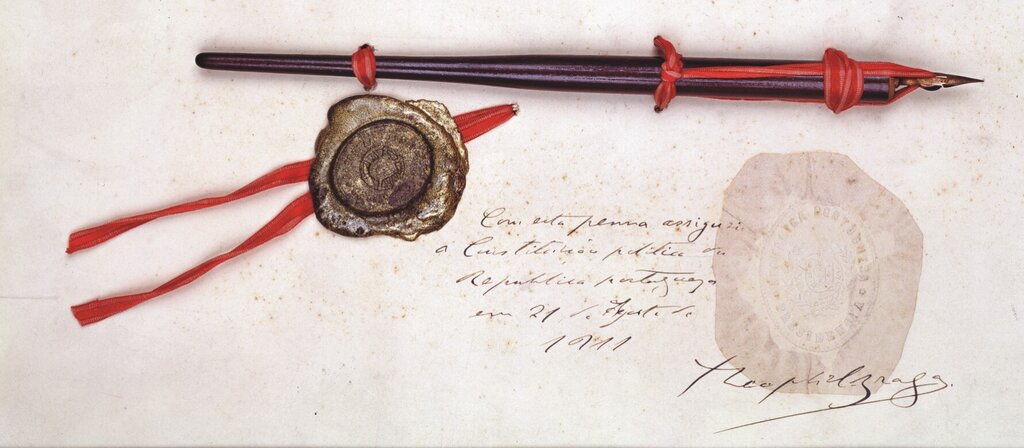 Com esta penna assignei
a Constituição politica da
Republica portugueza
em 21 de Agosto de
1911
Theophilo Braga.